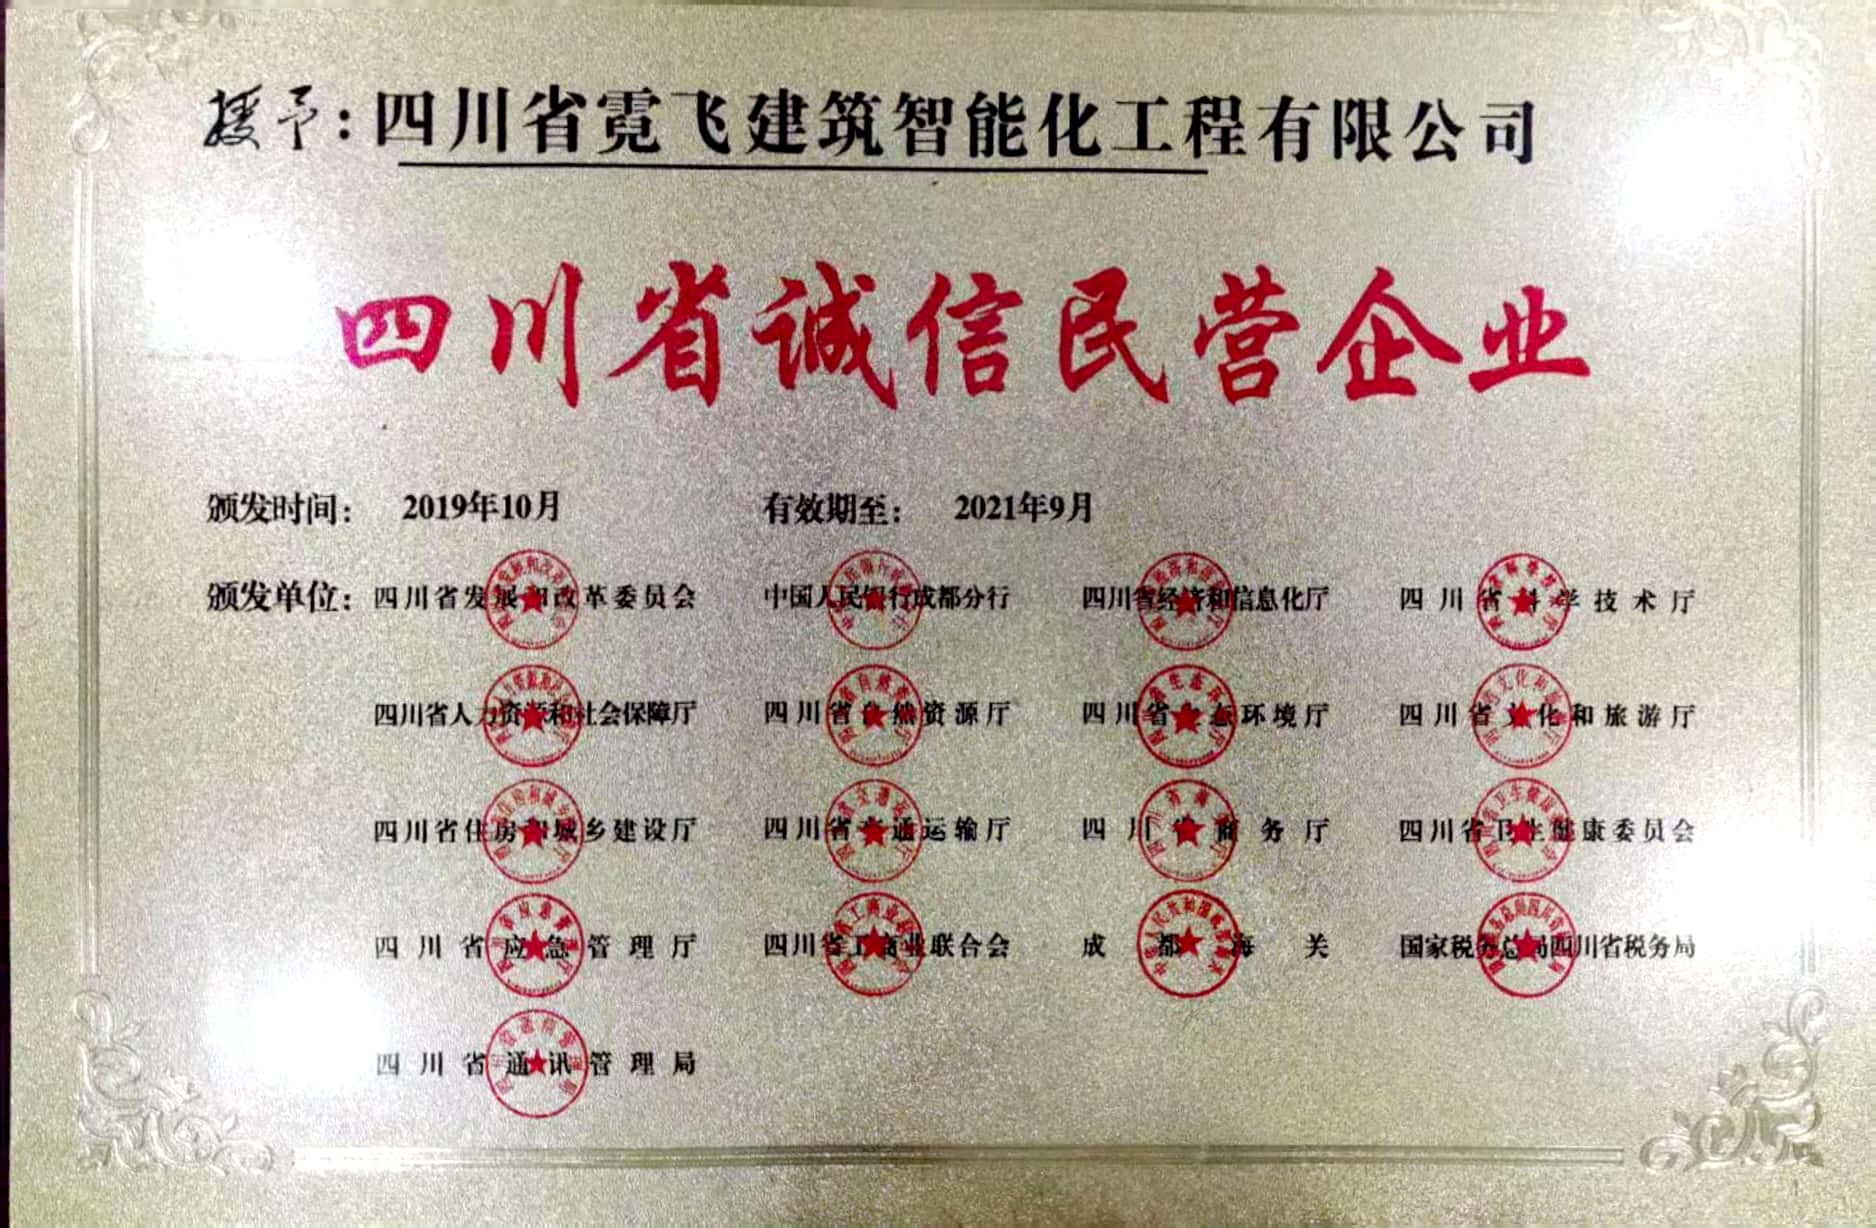 授予:四川省霓飞建筑智能化工程有限公司
四川省诚信民营企业
颁发时间: 2019年10月 有效期至: 2021年9月
颁发单位: 四川省发展和改革委员会 中国人民银行成都分行 四川省经济和信息化厅 四川省科学技术厅
四川省人力资源和社会保障厅 四川省自然资源厅 四川省生态环境厅 四川省文化和旅游厅
四川省住房和城乡建设厅 四川省交通运输厅 四川省商务厅 四川省卫生健康委员会
四川省应急管理厅 四川省工商业联合会 成都海关 国家税务总局四川省税务局
四川省通讯管理局